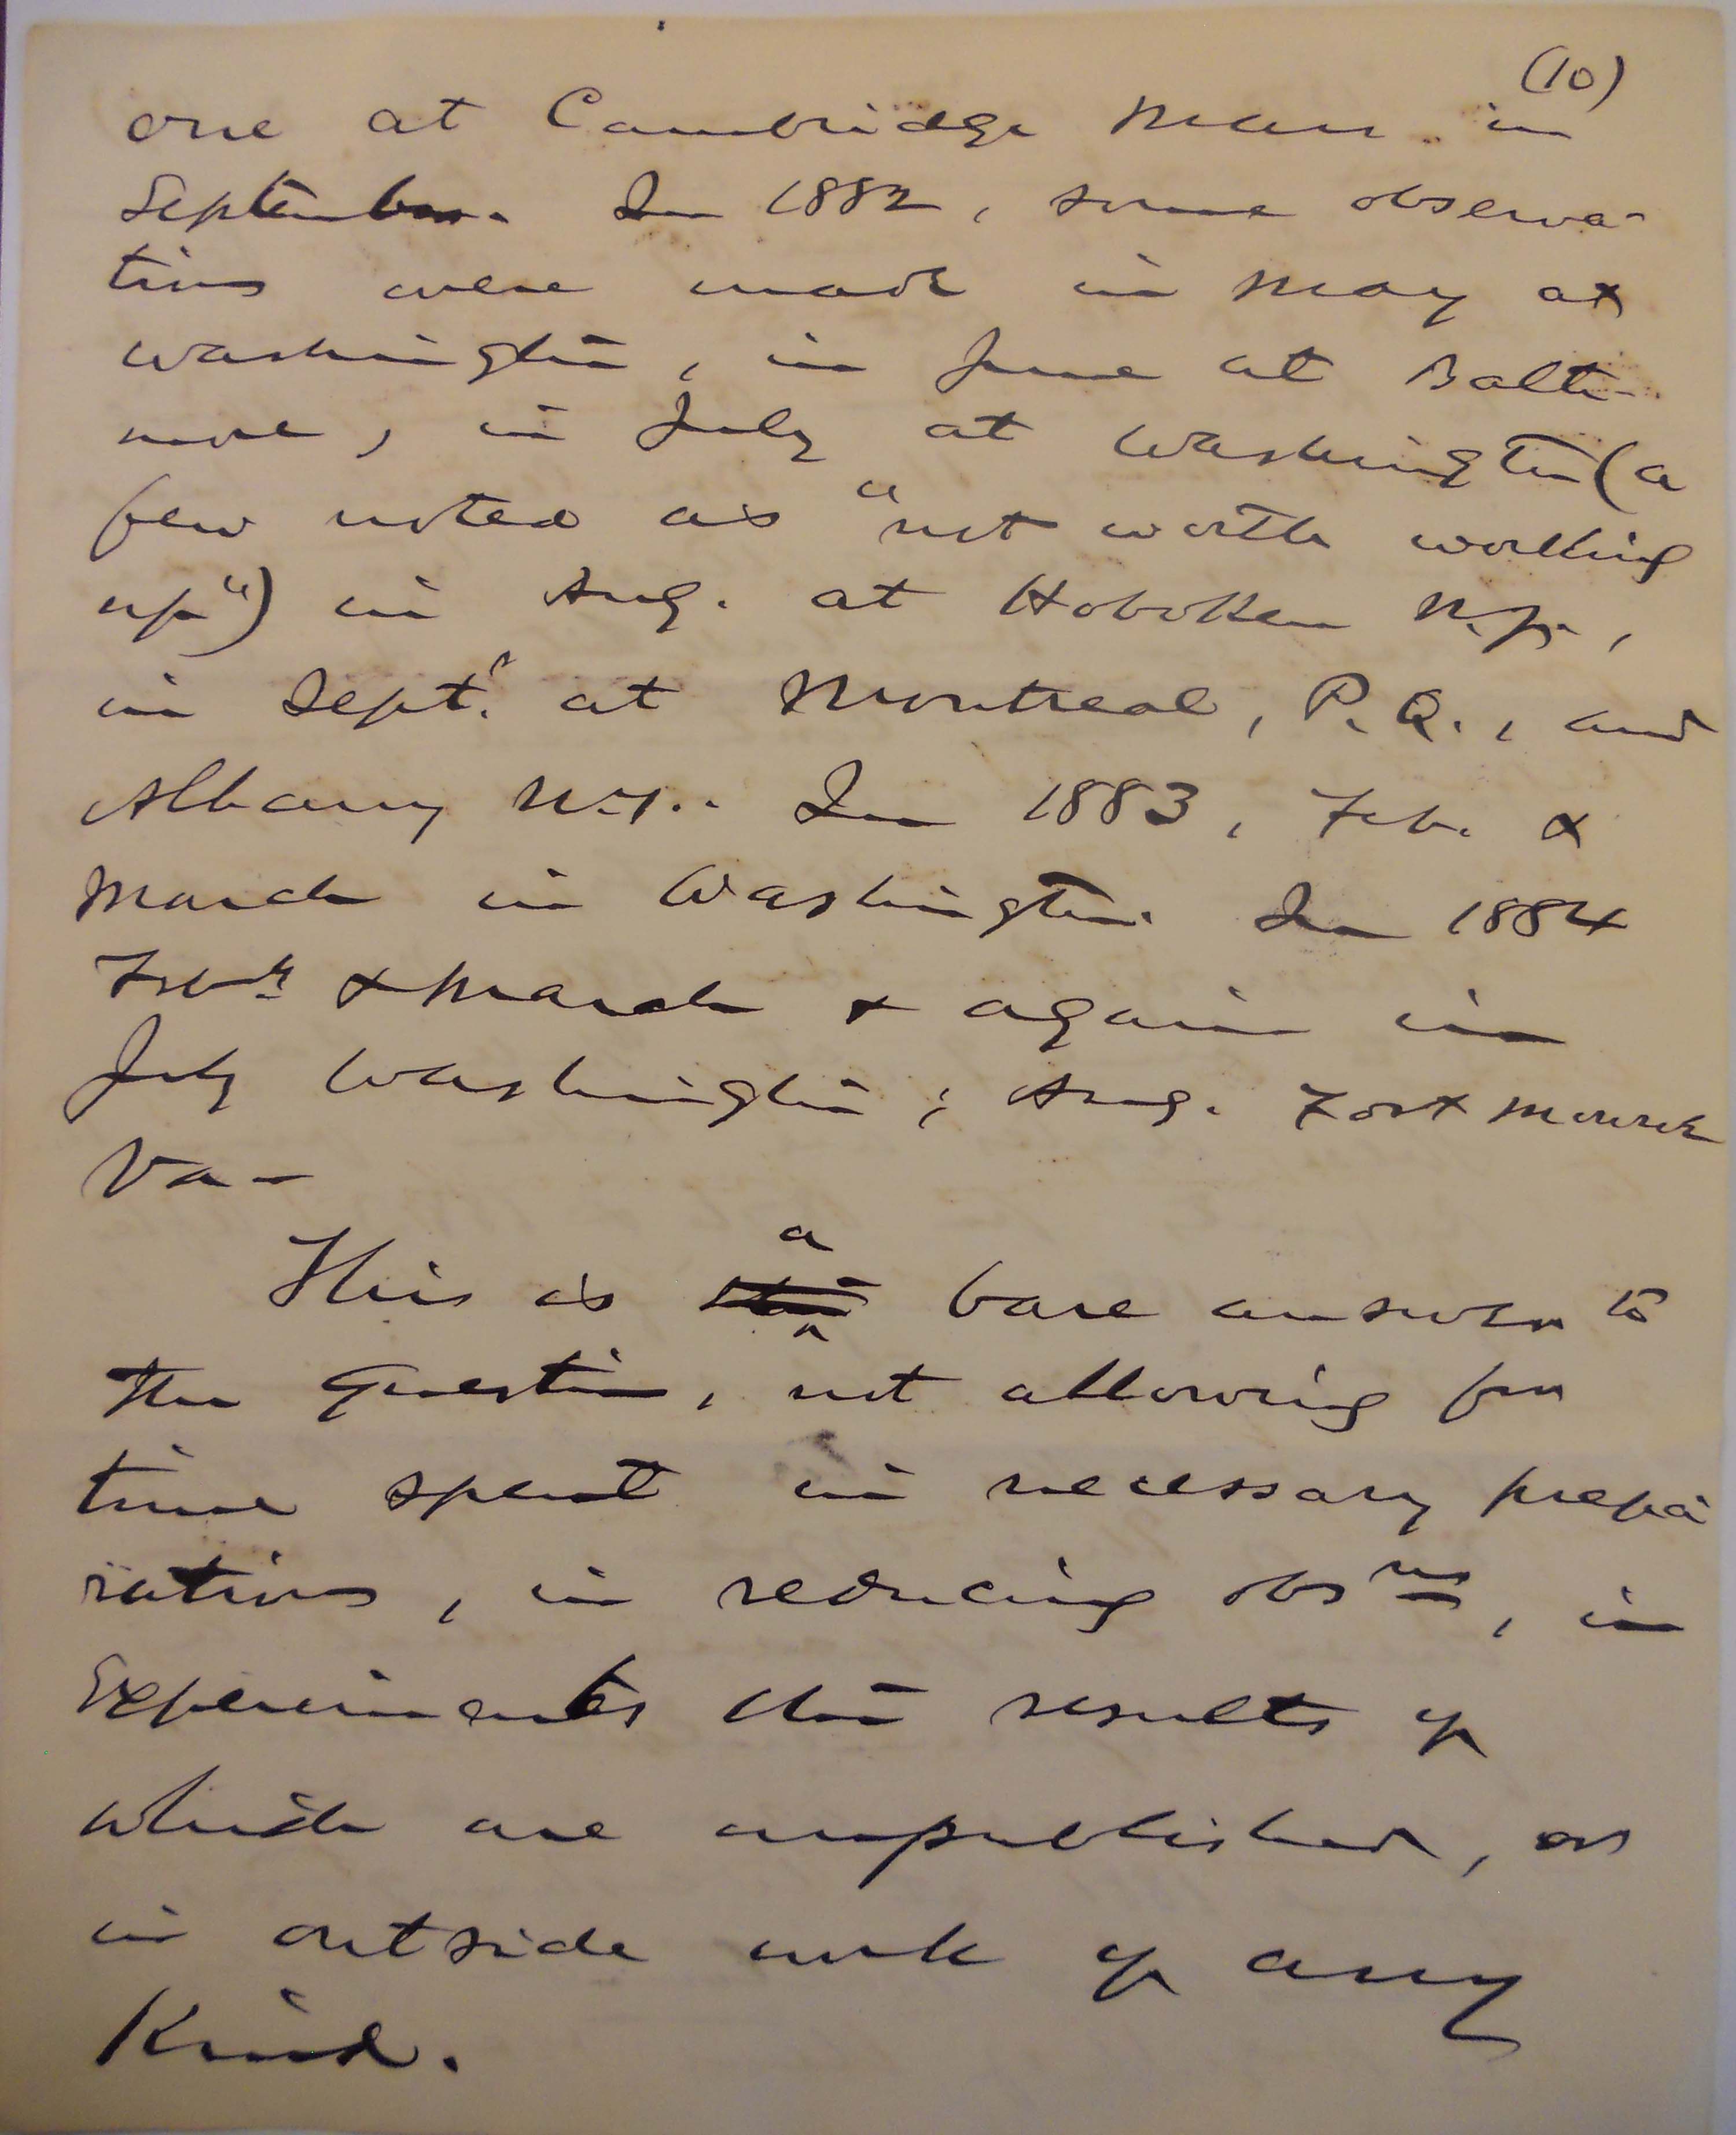 (10)
one at Cambridge Mass. in
September. In 1882, some observa-
tions were made in May at
Washington, in June at Balti-
more, in July at Washington (a
few noted as "not worth working
up") in Aug. at Hoboken N.J.,
in Sept. at Montreal, P.Q., and
Albany N.Y.. In 1883, Feb. &
March in Washington. In 1884
Feby & March & again in
July Washington; Aug. Fort Monroe
Va-
a
This is bare answer to
the question, not allowing for
time spent in necessary prepa
rations, in reducing obsns, in
Experiments the results of
which are unpublished, or
in outside work of any
Kind.